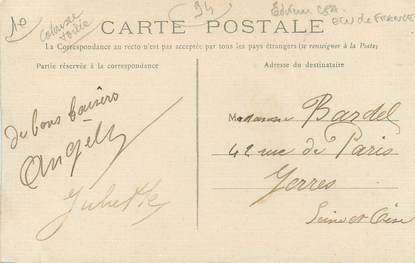 10
Colorisée
toilée
94
CARTE POSTALE
La Correspondance au recto n'est pas acceptée par tous les pays étrangers (se renseigner à la Poste)
Partie réservée à la correspondance
Adresse du destinataire
de bons baisers
Angèle
Juliette
Madame Bardel
42 rue de Paris
Yerres
Seine et Oise